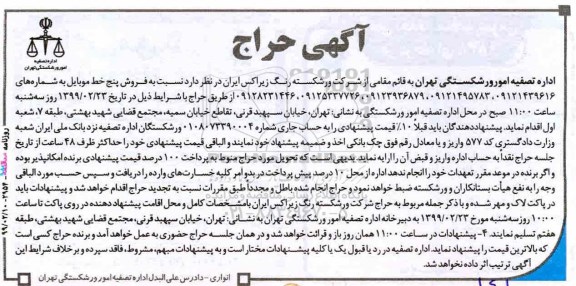 آگهی حراج
اداره تصفیه
امور ورشکستگی تهران
اداره تصفیه امور ورشکستگی تهران به قائم مقامی از شرکت ورشکسته رنگ زیراکس ایران در نظر دارد نسبت به فروش پنج خط موبایل به شماره‌های
۰۹۱۲۱۴۳۹۶۱۶، ۰۹۱۲۱۴۹۵۷۸۳، ۰۹۱۲۳۹۳۶۸۷۹، ۰۹۱۲۵۳۳۷۷۴۶، ۰۹۱۲۸۲۳۱۴۴۶ از طریق حراج با شرایط ذیل در تاریخ ۱۳۹۹/۰۲/۲۳ روز سه‌شنبه
ساعت ۱۱:۰۰ صبح در محل اداره تصفیه امور ورشکستگی به نشانی: تهران، خیابان سپهبد قرنی، تقاطع خیابان سمیه، مجتمع قضایی شهید بهشتی، طبقه ۷، شعبه
اول اقدام نماید. پیشنهاددهندگان باید قبلاً ۱۰٪ قیمت پیشنهادی را به حساب جاری شماره ۰۱۰۸۰۷۳۳۹۰۰۰۴ ورشکستگان اداره تصفیه نزد بانک ملی ایران شعبه
وزارت دادگستری کد ۵۷۷ واریز و یا معادل رقم فوق چک بانکی اخذ و ضمیمه پیشنهاد خود نمایند و الباقی قیمت پیشنهادی خود را حداکثر ظرف ۴۸ ساعت از تاریخ
جلسه حراج نقداً به حساب اداره واریز و قبض آن را ارایه نماید بدیهی است که تحویل مورد حراج منوط به پرداخت ۱۰۰ درصد قیمت پیشنهادی برنده امکانپذیر بوده
و اگر برنده در موعد مقرر تعهدات خود را انجام ندهد اداره از محل ۱۰ درصد پیش پرداخت در بدو امر کلیه خسارت‌های وارده را دریافت و سپس حسب مورد الباقی
وجه را به نفع هیأت بستانکاران و ورشکسته ضبط خواهد نمود و حراج انجام شده باطل و مجدداً طبق مقررات نسبت به تجدید حراج اقدام خواهد شد و پیشنهادات باید
در پاکت لاک و مهر شده و با ذکر جمله مربوط به حراج شرکت ورشکسته رنگ زیراکس ایران با مشخصات کامل و محل اقامت پیشنهاد دهنده در روی پاکت تا ساعت
۱۰:۰۰ روز سه‌شنبه مورخ ۱۳۹۹/۰۲/۲۳ به دبیرخانه اداره تصفیه امور ورشکستگی به نشانی: تهران، خیابان سپهبد قرنی، مجتمع قضایی شهید بهشتی، طبقه
هفتم تسلیم نمایند. ۴- پیشنهادات در ساعت ۱۱:۰۰ همان روز باز و قرائت خواهد شد و در همان جلسه حراج حضوری به عمل خواهد آمد و برنده حراج کسی است
که بالاترین قیمت را پیشنهاد نماید. اداره تصفیه در رد یا قبول یک یا کلیه پیشنهادات مختار است و به پیشنهادات مبهم، مشروط، فاقد سپرده و بر خلاف شرایط این
آگهی ترتیب اثر داده نخواهد شد.
انواری - دادرس علی البدل اداره تصفیه امور ورشکستگی تهران